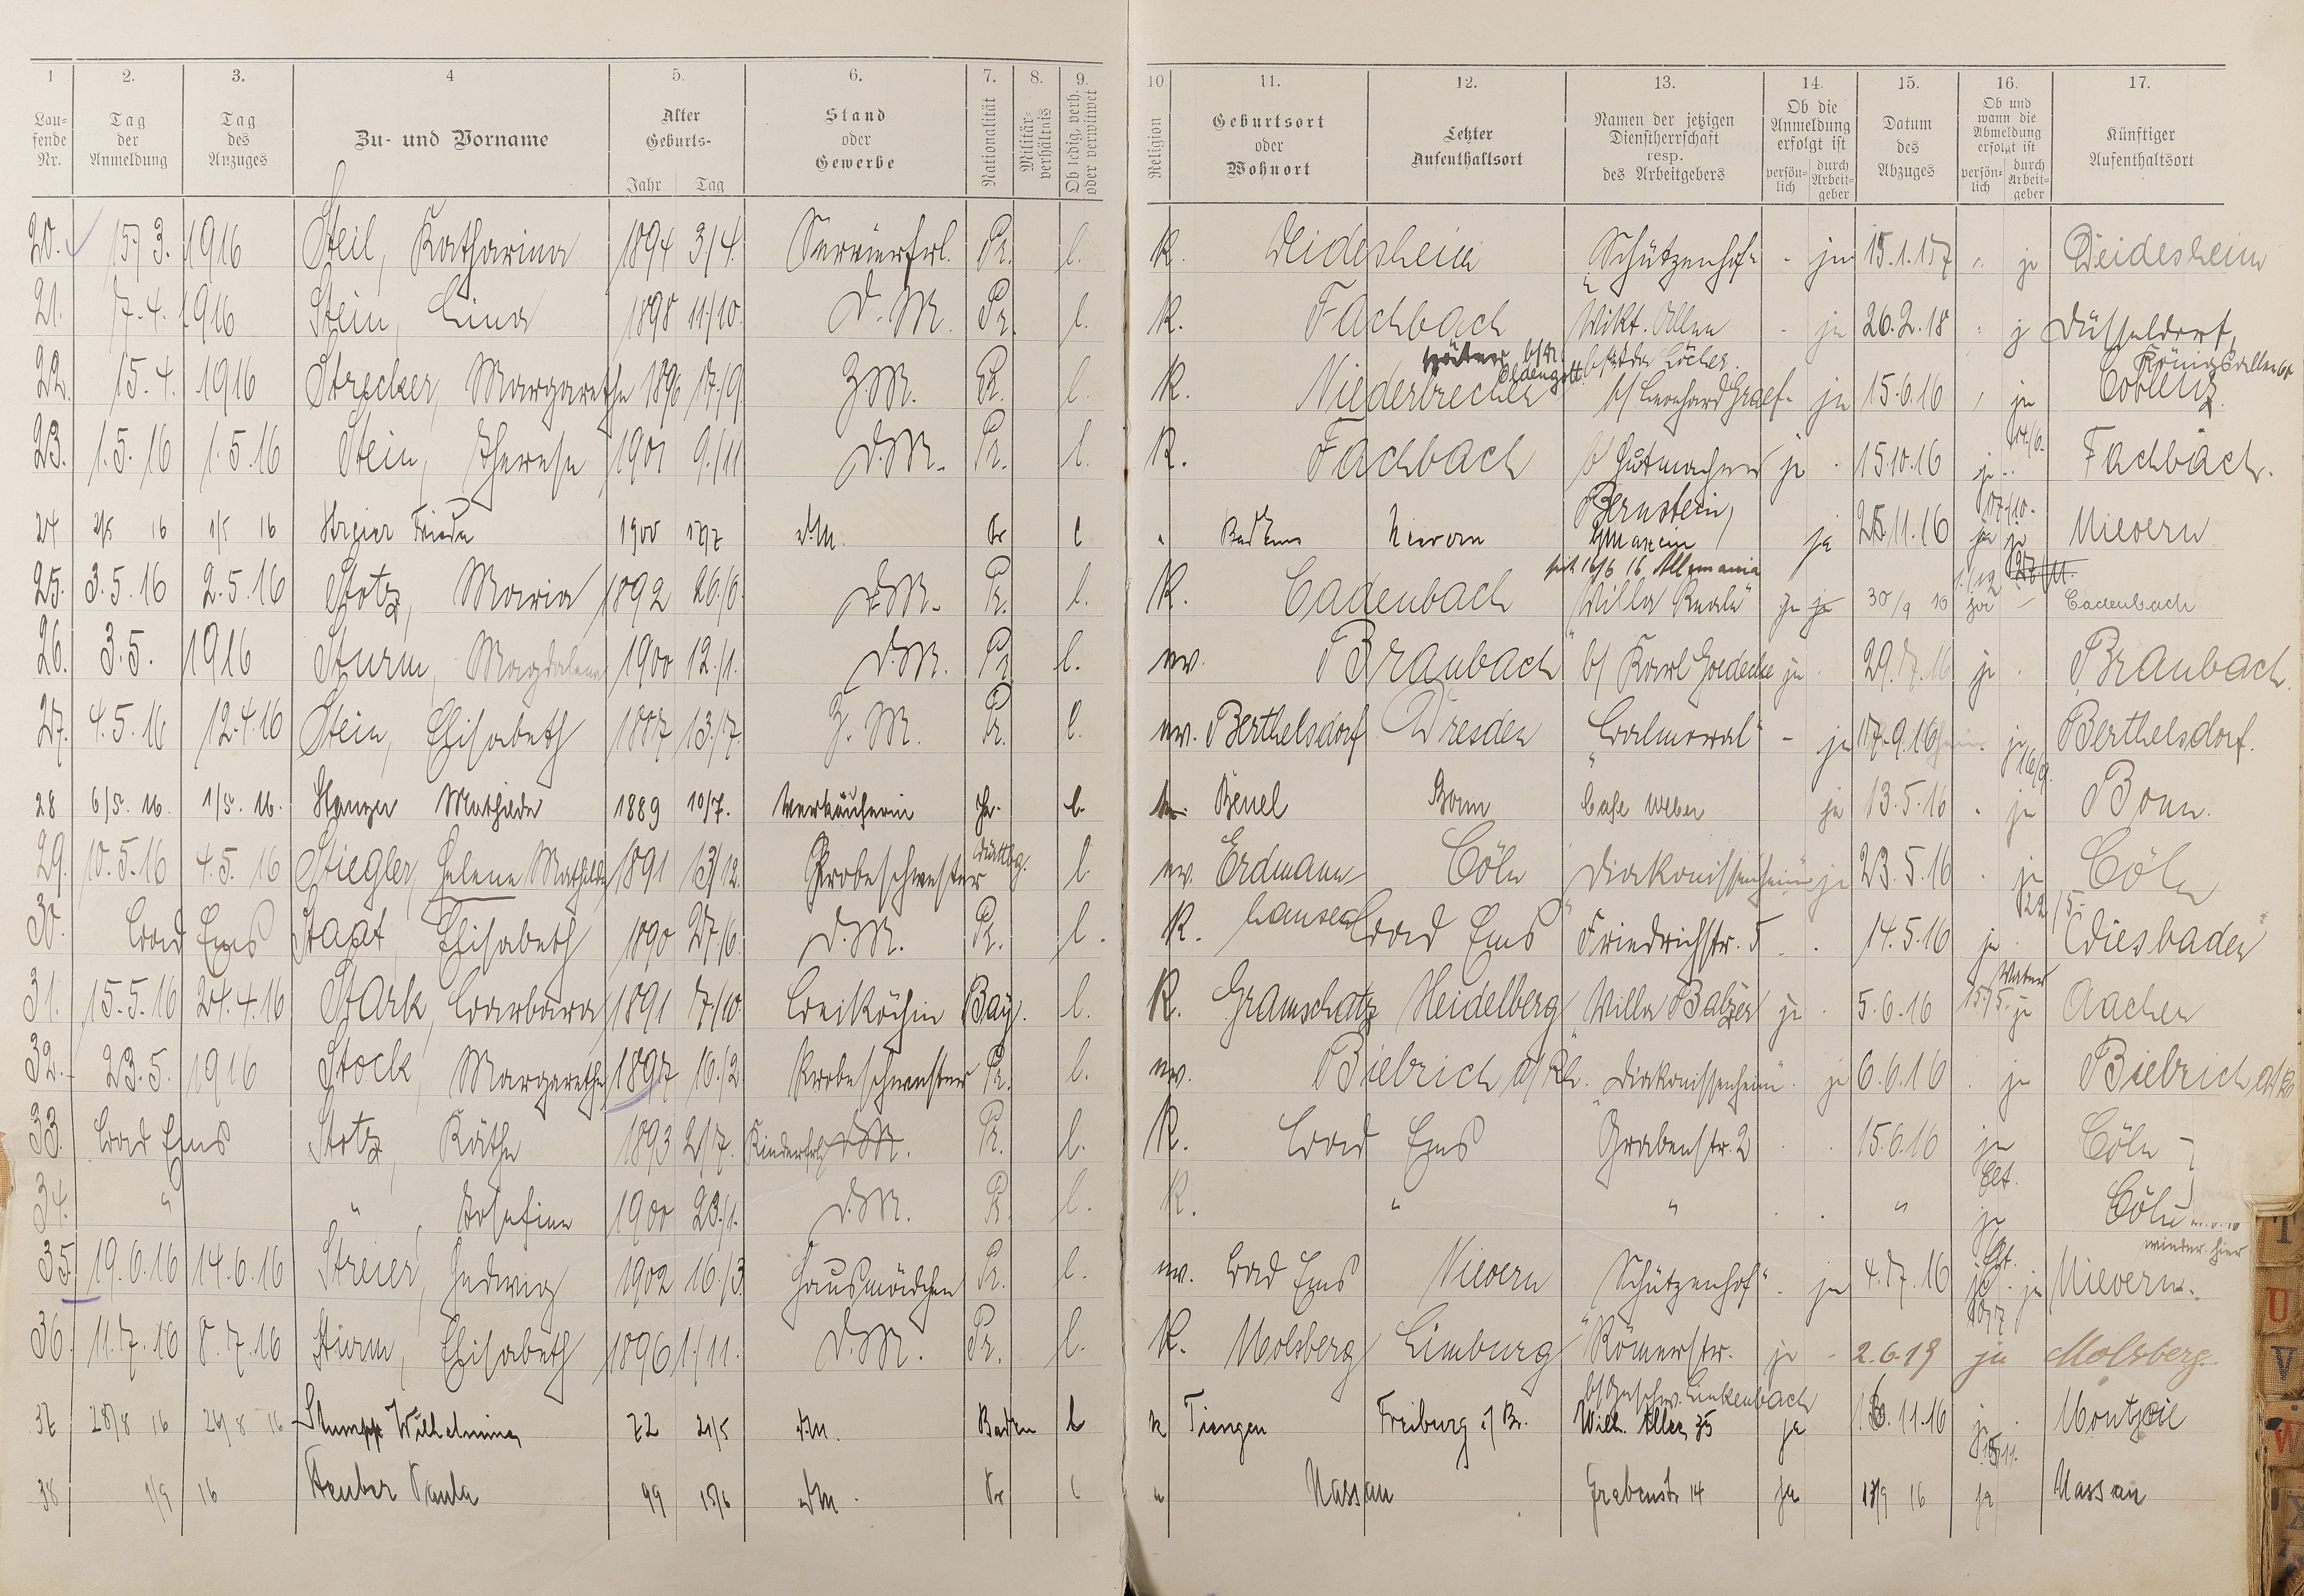 1 2. 3. 4 5. 6. 7. 8. 9. 10. 11. 12. 13. 14. 15. 16. 17.
Laufende Nr. Tag der Anmeldung Tag des Anzuges Zu- und Vorname Alter Geburts- Jahr Tag Stand oder Gewerbe Nationalität Militärverhältnis Ob ledig, verh. oder verwitwet Religion Geburtsort oder Wohnort Letzter Aufenthaltsort Namen der jetzigen Dienstherrschaft resp. des Arbeitgebers Ob die Anmeldung erfolgt ist persönlich durch Arbeitgeber Datum des Abzuges Ob und wann die Abmeldung erfolgt ist persönlich durch Arbeitgeber Künftiger Aufenthaltsort
20. 15/3. 1916 Steil, Katharina 1894 3/4. Servierfrl. Pr. l. K. Deidesheim "Schützenhof" - ja 15.1.17 " ja Deidesheim
21. 7.4. 1916 Stein, Lina 1898 11/10. D.M. Pr. l. K. Fachbach Vikt. Allee - ja 26.2.18 " j Düsseldorf, Königsallee
22. 15.4. 1916 Strecker, Margarethe 1896 17/9. Z.M. Pr. l. K. Niederbrechen b/ Leonhard Graef - ja 15.6.16 ja Coblenz.
23. 1.5.16 1.5.16 Stein, Therese 1901 9./11 D.M. Pr. l. K. Fachbach b/ Gutmacher ja - 15.10.16 ja Fachbach.
24 2/5 16 1/5 16 Streier Frieda 1900 D.M. Pr l " Bad Ems Nievern Bernstein, ja 25.11.16 ja ja Nievern
25. 3.5.16 2.5.16 Stotz, Maria 1892 26/6. D.M. Pr. l. K. Cadenbach seit 16/6 16 Allemania "Villa ja ja 30/9 16 ja - Cadenbach
26. 3.5. 1916 Sturm, Magdalena 1900 12./1. D.M. Pr. l. ev. Braubach b/ Karl Goedecke ja 29.7.16 ja Braubach.
27. 4.5.16 12.4.16 Stein, Elisabeth 1887 13/7. Z.M. Pr. l. ev. Berthelsdorf Dresden "Balmoral" - ja 17.9.16 ja 16/9. Berthelsdorf.
28 6/5. 16. 1/5. 16. Mathilde 1889 10/7. Verkäuferin Pr. l. Beuel Bonn Cafe Weber ja 13.5.16 " ja Bonn.
29. 10.5.16 4.5.16 Stiegler, Helene Mathilde 1891 13/12. Probeschwester l. ev. Erdmannhausen Cöln "Diakonissenheim" ja 23.5.16 " ja 22/5. Cöln
30. Bad Ems Staat, Elisabeth 1890 27/6. D.M. Pr. l. K. Bad Ems Friedrichstr. 5 . . 14.5.16 ja . Wiesbaden
31. 15.5.16 24.4.16 Stark, Barbara 1891 7./10. Beiköchin Bay. l. K. Gramschatz Heidelberg "Villa Balzer ja . 5.6.16 ja Aachen
32. 23.5. 1916 Stock, Margarethe 1897 16/2 Probeschwester Pr. l. ev. Biebrich a/Rh. "Diakonissenheim" . ja 6.6.16 . ja Biebrich a/Rh
33. Bad Ems Stotz, Käthe 1893 2/7. Kinderfrl. D.M. Pr. l. K. Bad Ems Grabenstr. 2 . . 15.6.16 ja Cöln
34. " " , Josefine 1900 23./1. D.M. Pr. l. K. " " . . " ja Cöln wieder hier
35. 19.6.16 14.6.16 Streier, Hedwig 1902 16./3 Hausmädchen Pr. l. ev. Bad Ems Nievern "Schützenhof" . ja 4.7.16 ja Nievern.
36. 11.7.16 8.7.16 Sturm, Elisabeth 1896 1./11. D.M. Pr. l. K. Molsberg Limburg Römerstr. ja - 2.6.19 ja Molsberg.
37 28/8 16 26/8 16 Stumpp Wilhelmina 72 21/5 D.M. Baden l k Tiengen Freiburg i/Br. b/ Geschw. Linkenbach Wilh. Allee 35 ja 16.11.16 ja 15/11.
38 1/9 16 Steuber Paula 99 15/6 D.M. Pr l Nassau Grabenstr 14 ja 17/9 16 ja Nassau
T
U
V
W
X